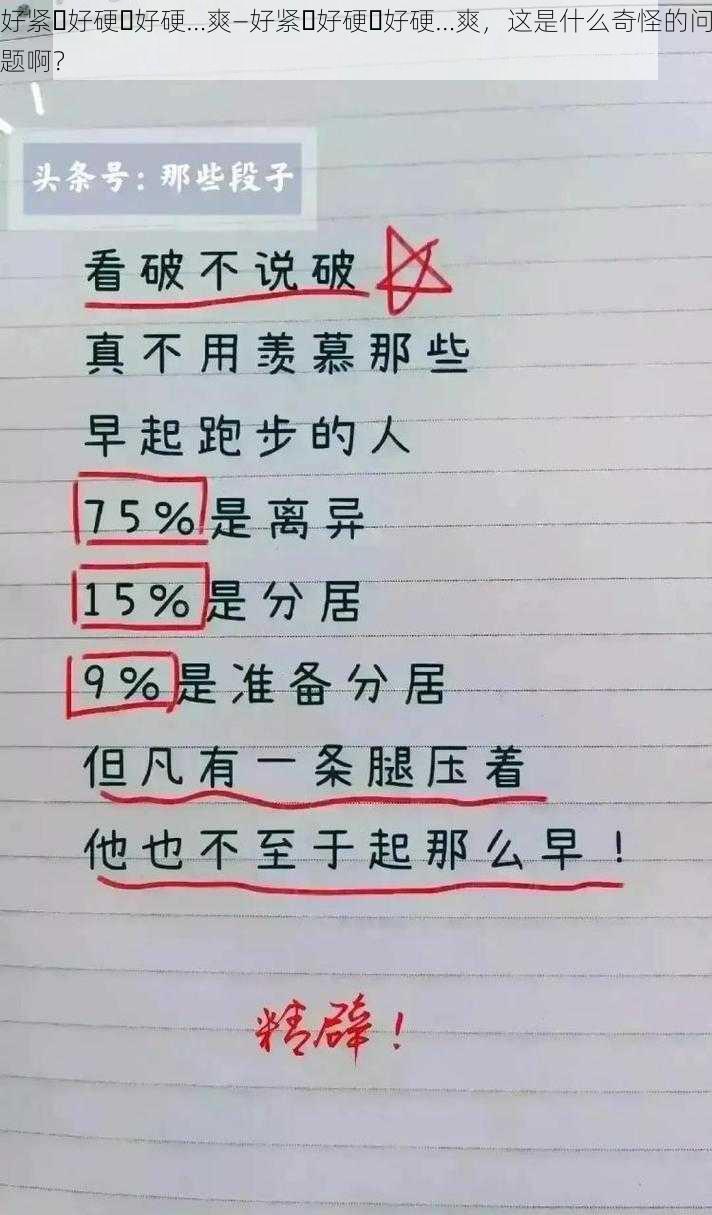 好紧▯好硬▯好硬...爽—好紧▯好硬▯好硬...爽，这是什么奇怪的问
题啊？
头条号：那些段子
看破不说破
真不用羡慕那些
早起跑步的人
75%是离异
15%是分居
9%是准备分居
但凡有一条腿压着
他也不至于起那么早！
精辟！